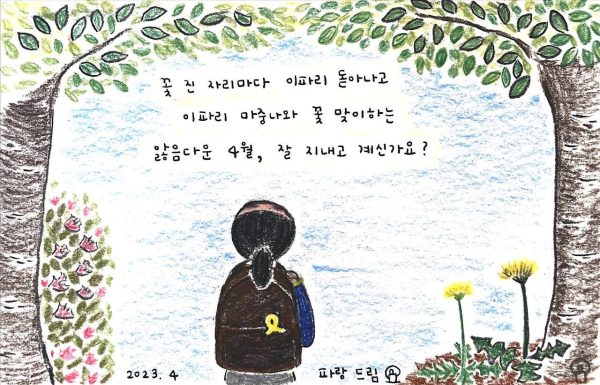 꽃 진 자리마다 이파리 돋아나고
이파리 마중나와 꽃 맞이하는
앓음다운 4월, 잘 지내고 계신가요?
2023. 4
파랑 드림